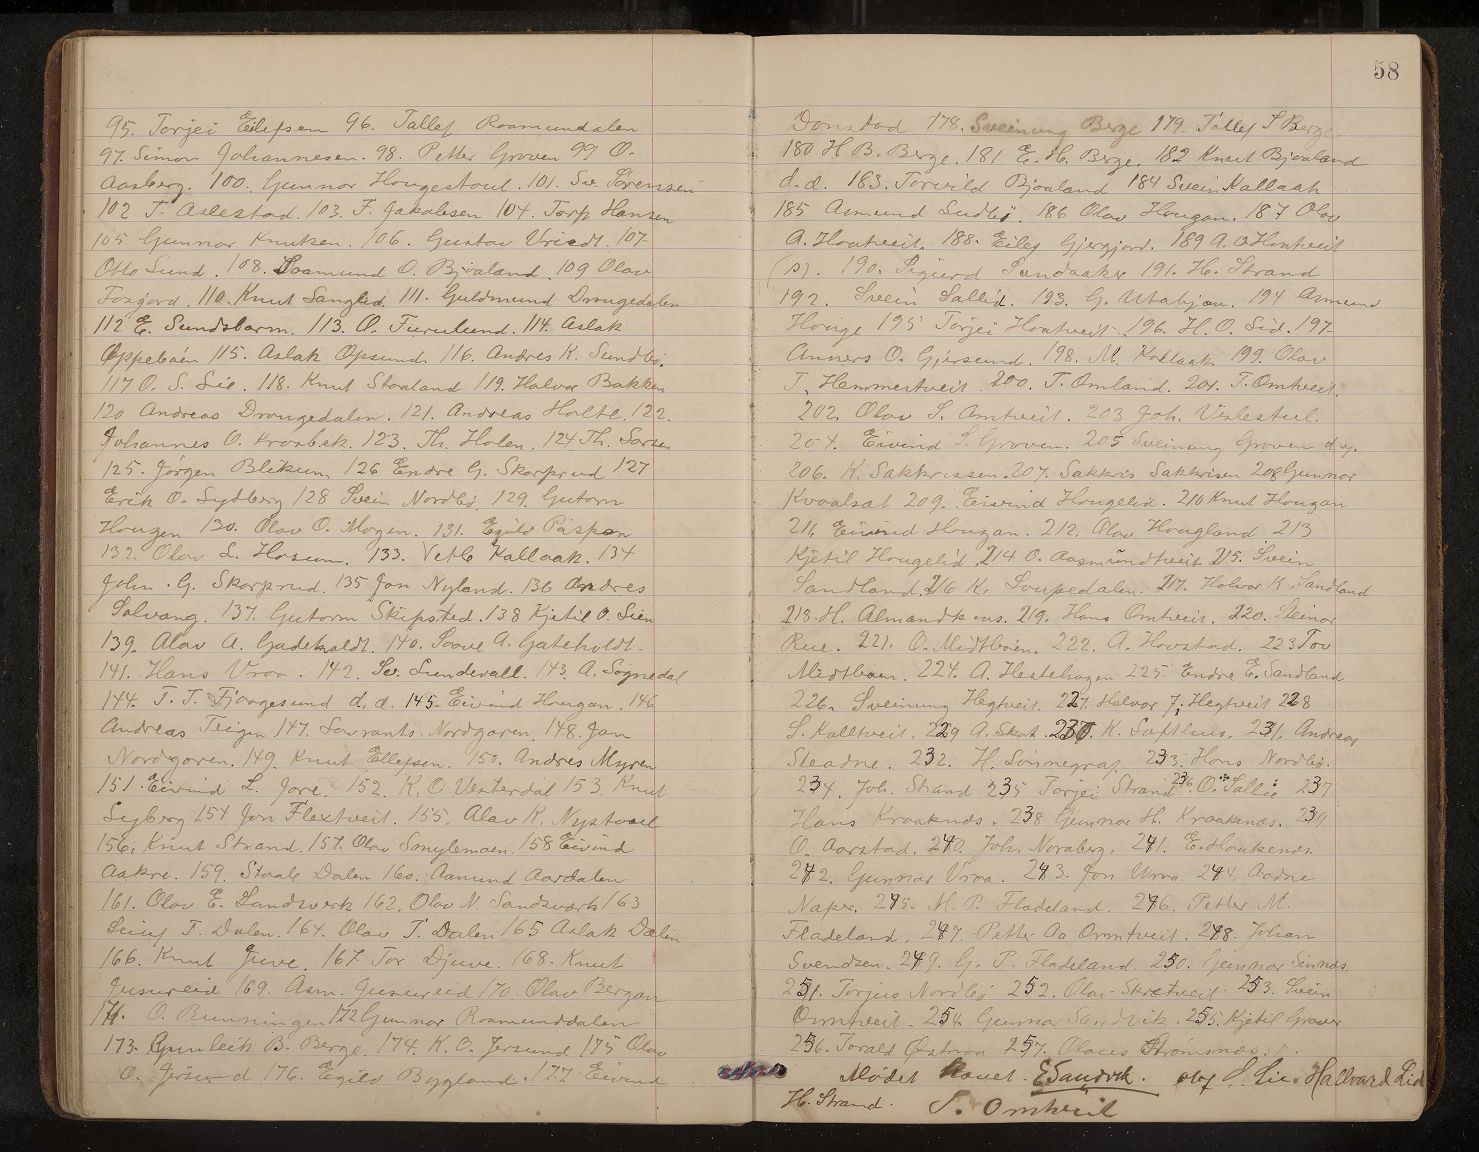 95. Torjei Eilefsen 96. Tallef Roamundalen
97. Simon Johannesen. 98. Petter Groven 99 O.
Aasberg. 100. Gunnar Hougestoul. 101. Sv. Sørenssen
102 T. Aslestad. 103. F. Jakobsen 104. Torp Hansen
105 Gunnar Knutsen. 106. Gustav Vriedt. 107.
Otto Lund. 108. Roamund O. Bjoaland. 109 Olav
110. Knut Langlid. 111. Guldmund Drougedalen
112 E. Sundsbarm. 113. O. Furulund. 114. Aslak
Oppebøen 115. Aslak Opsund. 116. Andres K. Sundbø.
117 O. S. Lie. 118. Knut Stoaland 119. Halvor Bakken
120 Andreas Drougedalen. 121. Andreas Holte. 122.
Johannes O. 123. Th. Holen. 124 Th. Larsen
125. Jørgen Blikum 126 Endre G. Skorprud 127
Erik O. Lydberg 128 Svein Nordbø. 129. Gutorm
Hougen 130. Olav O. Mogen. 131. Egild
132. Olav L. Hosum. 133. Vetle Kallaak. 134
John G. Skorprud. 135 Jon Nyland. 136 Andres
Solvang. 137. Gutorm Skipsted. 138 Kjetil O. Lien
139. Alav A. Gadeholdt. 140. Soave A. Gateholdt.
141. Hans Vraa. 142. Sv. Lundevall. 143. A. Sognedal
144. T. T. Fjaagesund d. æ. 145. Eivind Hougan. 146
Andreas Teigen. 147. Lavrants Nordgaren. 148. Jan
Nordgaren. 149. Knut Ellefsen. 150. Andres Myren
151. Eivind L. Jore. 152. K. O. Vesterdal 153. Knut
Lyberg 154 Jon Flextveit. 155. Alav K. Nystoael
156. Knut Strand. 157. Olav Smylemoen 158 Eivind
Aakre. 159. Staale Dalen 160. Aamund Aardalen
161. Olav E. Landsverk 162. Olav N. Sandsværk 163
Leiuf T. Dalen. 164. Olav T. Dalen 165 Aslak Dalen
166. Knut Juve. 167 Tor Djuve. 168. Knut
Jusureid 169. Asm. Jusureid 170. Olav Bergan
171. O. Runningen 172 Gunnar Roamunddalen
173. Gunleik B. Berge. 174. K. O. Jørsund 175 Olav
O. Jørsund 176. Egild Bygland. 177 Eivind
58
Donstad 178. Sveinung Berge 179. Tallef S Berge
180 H. B. Berge. 181 E. H. Berge. 182 Knut Bjoaland
d. æ. 183. Torvild Bjoaland 184 Svein Kallaak
185 Asmund Ludbø. 186 Olav Hougan. 187 Olav
A. Hoatveit. 188. Eilef Gjergjord. 189 A. O. Hoatveit
(s). 190. Sigurd Sundaaker 191. H. Strand
192. Svein Sallid. 193. G. Utabjoen. 194 Asmund
Houge 195 Torjei Hoatveit. 196. H. O. Lid. 197.
Anners O. Gjersund. 198. M. Kallaak. 199. Olav
T. Hemmestveit 200. T. Omland. 201. T. Omtveit.
202. Olav S. Omtveit. 203 Joh. Veslestul.
204. Eivind S. Groven. 205 Sveinung Groven d. y.
206. K. Sakkrissen. 207. Sakkris Sakkrisen 208 Gunnar
Kvaalsat 209. Eivind Hougelid. 210 Knut Hougan
211. Eivind Hougan. 212. Olav Hougland 213
Kjetil Hougelid. 214 O. Aasmundtveit 215. Svein
Sandland. 216 K. Loupedalen. 217. Halvor K. Sandland
218. H. Almandkaas. 219. Hans Omtveit. 220. Steinar
Rue. 221. O. Midtbøen. 222. A. Hovstad. 223 Tov
Midtbøen. 224. A. Hestehagen 225. Endre E. Sandland
226. Sveinung Hegtveit. 227. Halvor T. Hegtveit 228
S. Kalltveit. 229 A. Skat. 230. K. Lofthus. 231. Andreas
Steadne. 232. H. 233. Hans Nordbø.
234. Joh. Strand 235 Torjei Strand 236 O. Sallie 237
Hans Kraakenes. 238 Gunnar H. Kraakenes. 239
O. Aarstad. 240. John Noraberg. 241. E. Haukenes.
242. Gunnar Vraa. 243. Jon Urva. 244. Aadne
Naper. 245. M. P. Fladeland. 246. Petter M.
Fladeland. 247. Petter Aa Omtveit. 248. Johan
Svendsen. 249. G. P. Fladeland. 250. Gunnar Sinnes.
251. Torjus Nordbø 252. Olav Skretveit 253. Svein
Omtveit. 254. Gunnar Sandvik. 255. Kjetil Graver
256. Torald Østraa 257. Olaves Strømsnæs.
Mødet hævet. E Sandvik. Olaf S. Lie. Hallvard Lid
H. Strand. T. Omtveit